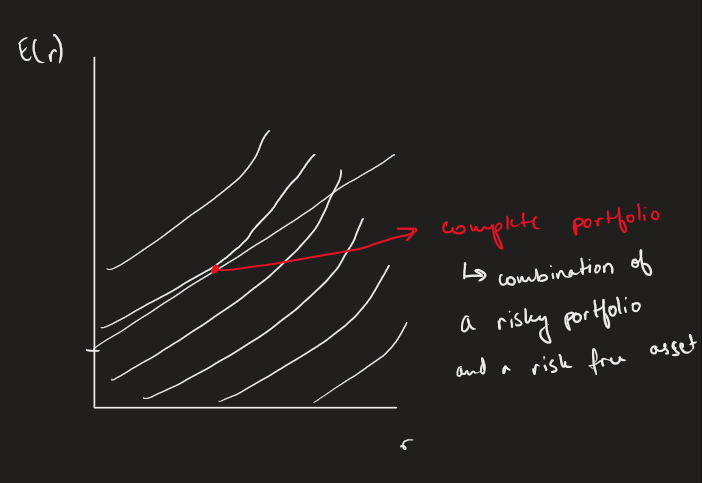 E(r)
complete portfolio
↳ combination of
a risky portfolio
and a risk free asset
σ